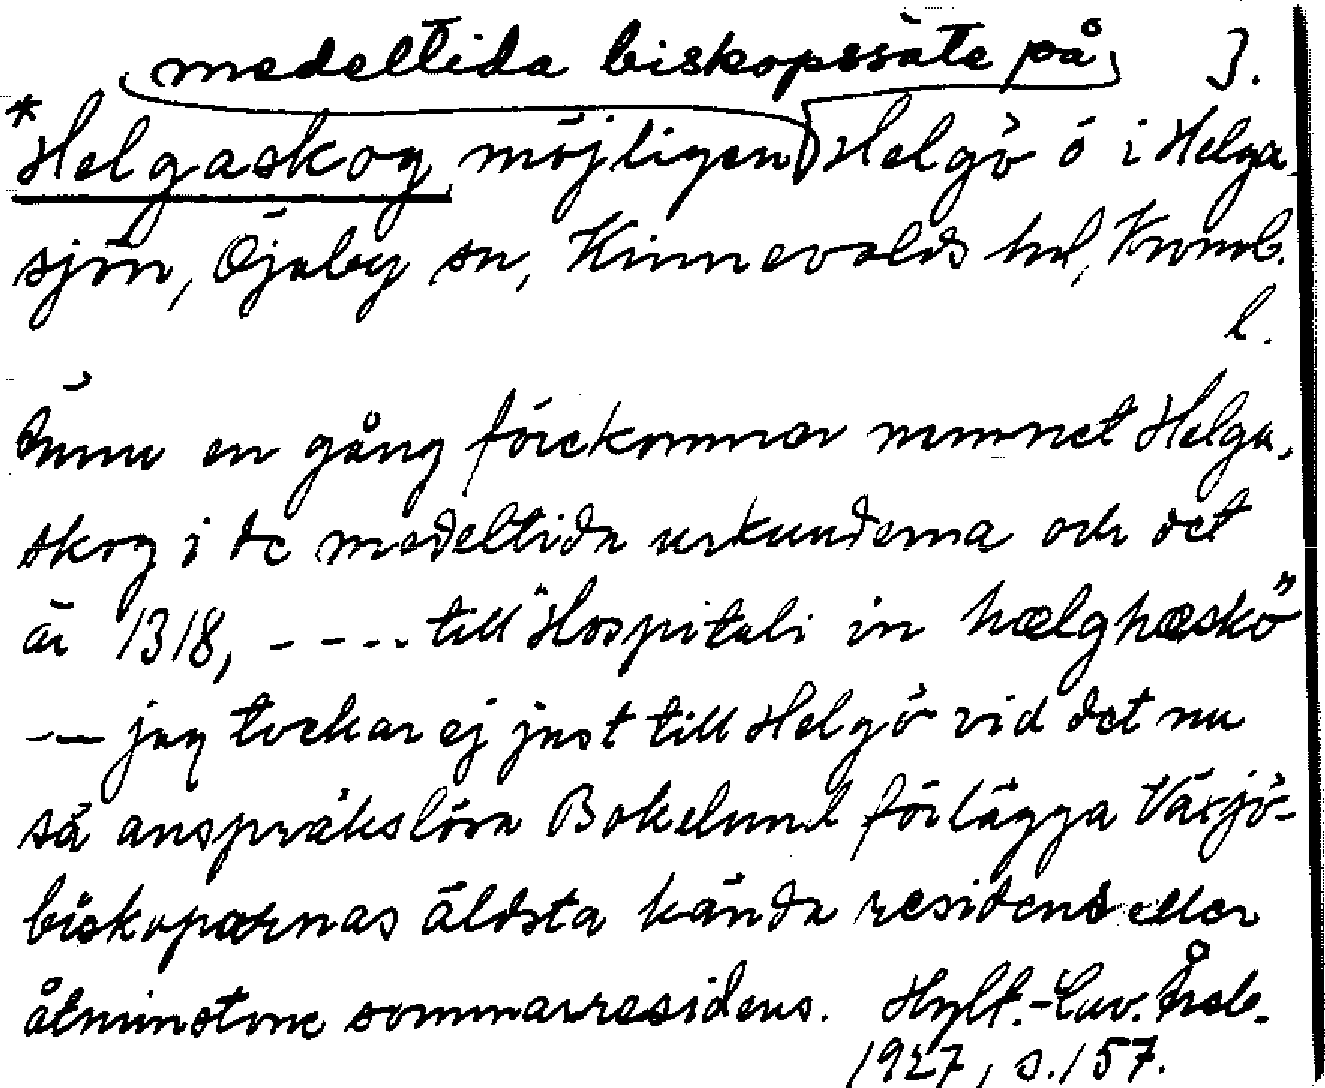 medeltida biskopssäte på 3.
*Helgaskog möjligen Helgö ö i Helga-
sjön, Öjaby sn, Kinnevalds hd, Kronob.
l.
Ännu en gång förekommer namnet Helga-
skog i de medeltida urkunderna och det
är 1318, - - - - till "Hospitali in hælghæskö"
-- jag tvekar ej just till Helgö vid det nu
så anspråkslösa Bokelund förlägga Växjö-
biskoparnas äldsta kända residens eller
åtminstone sommarresidens. Hylt.-Cav. Årsb.
1927, s. 157.